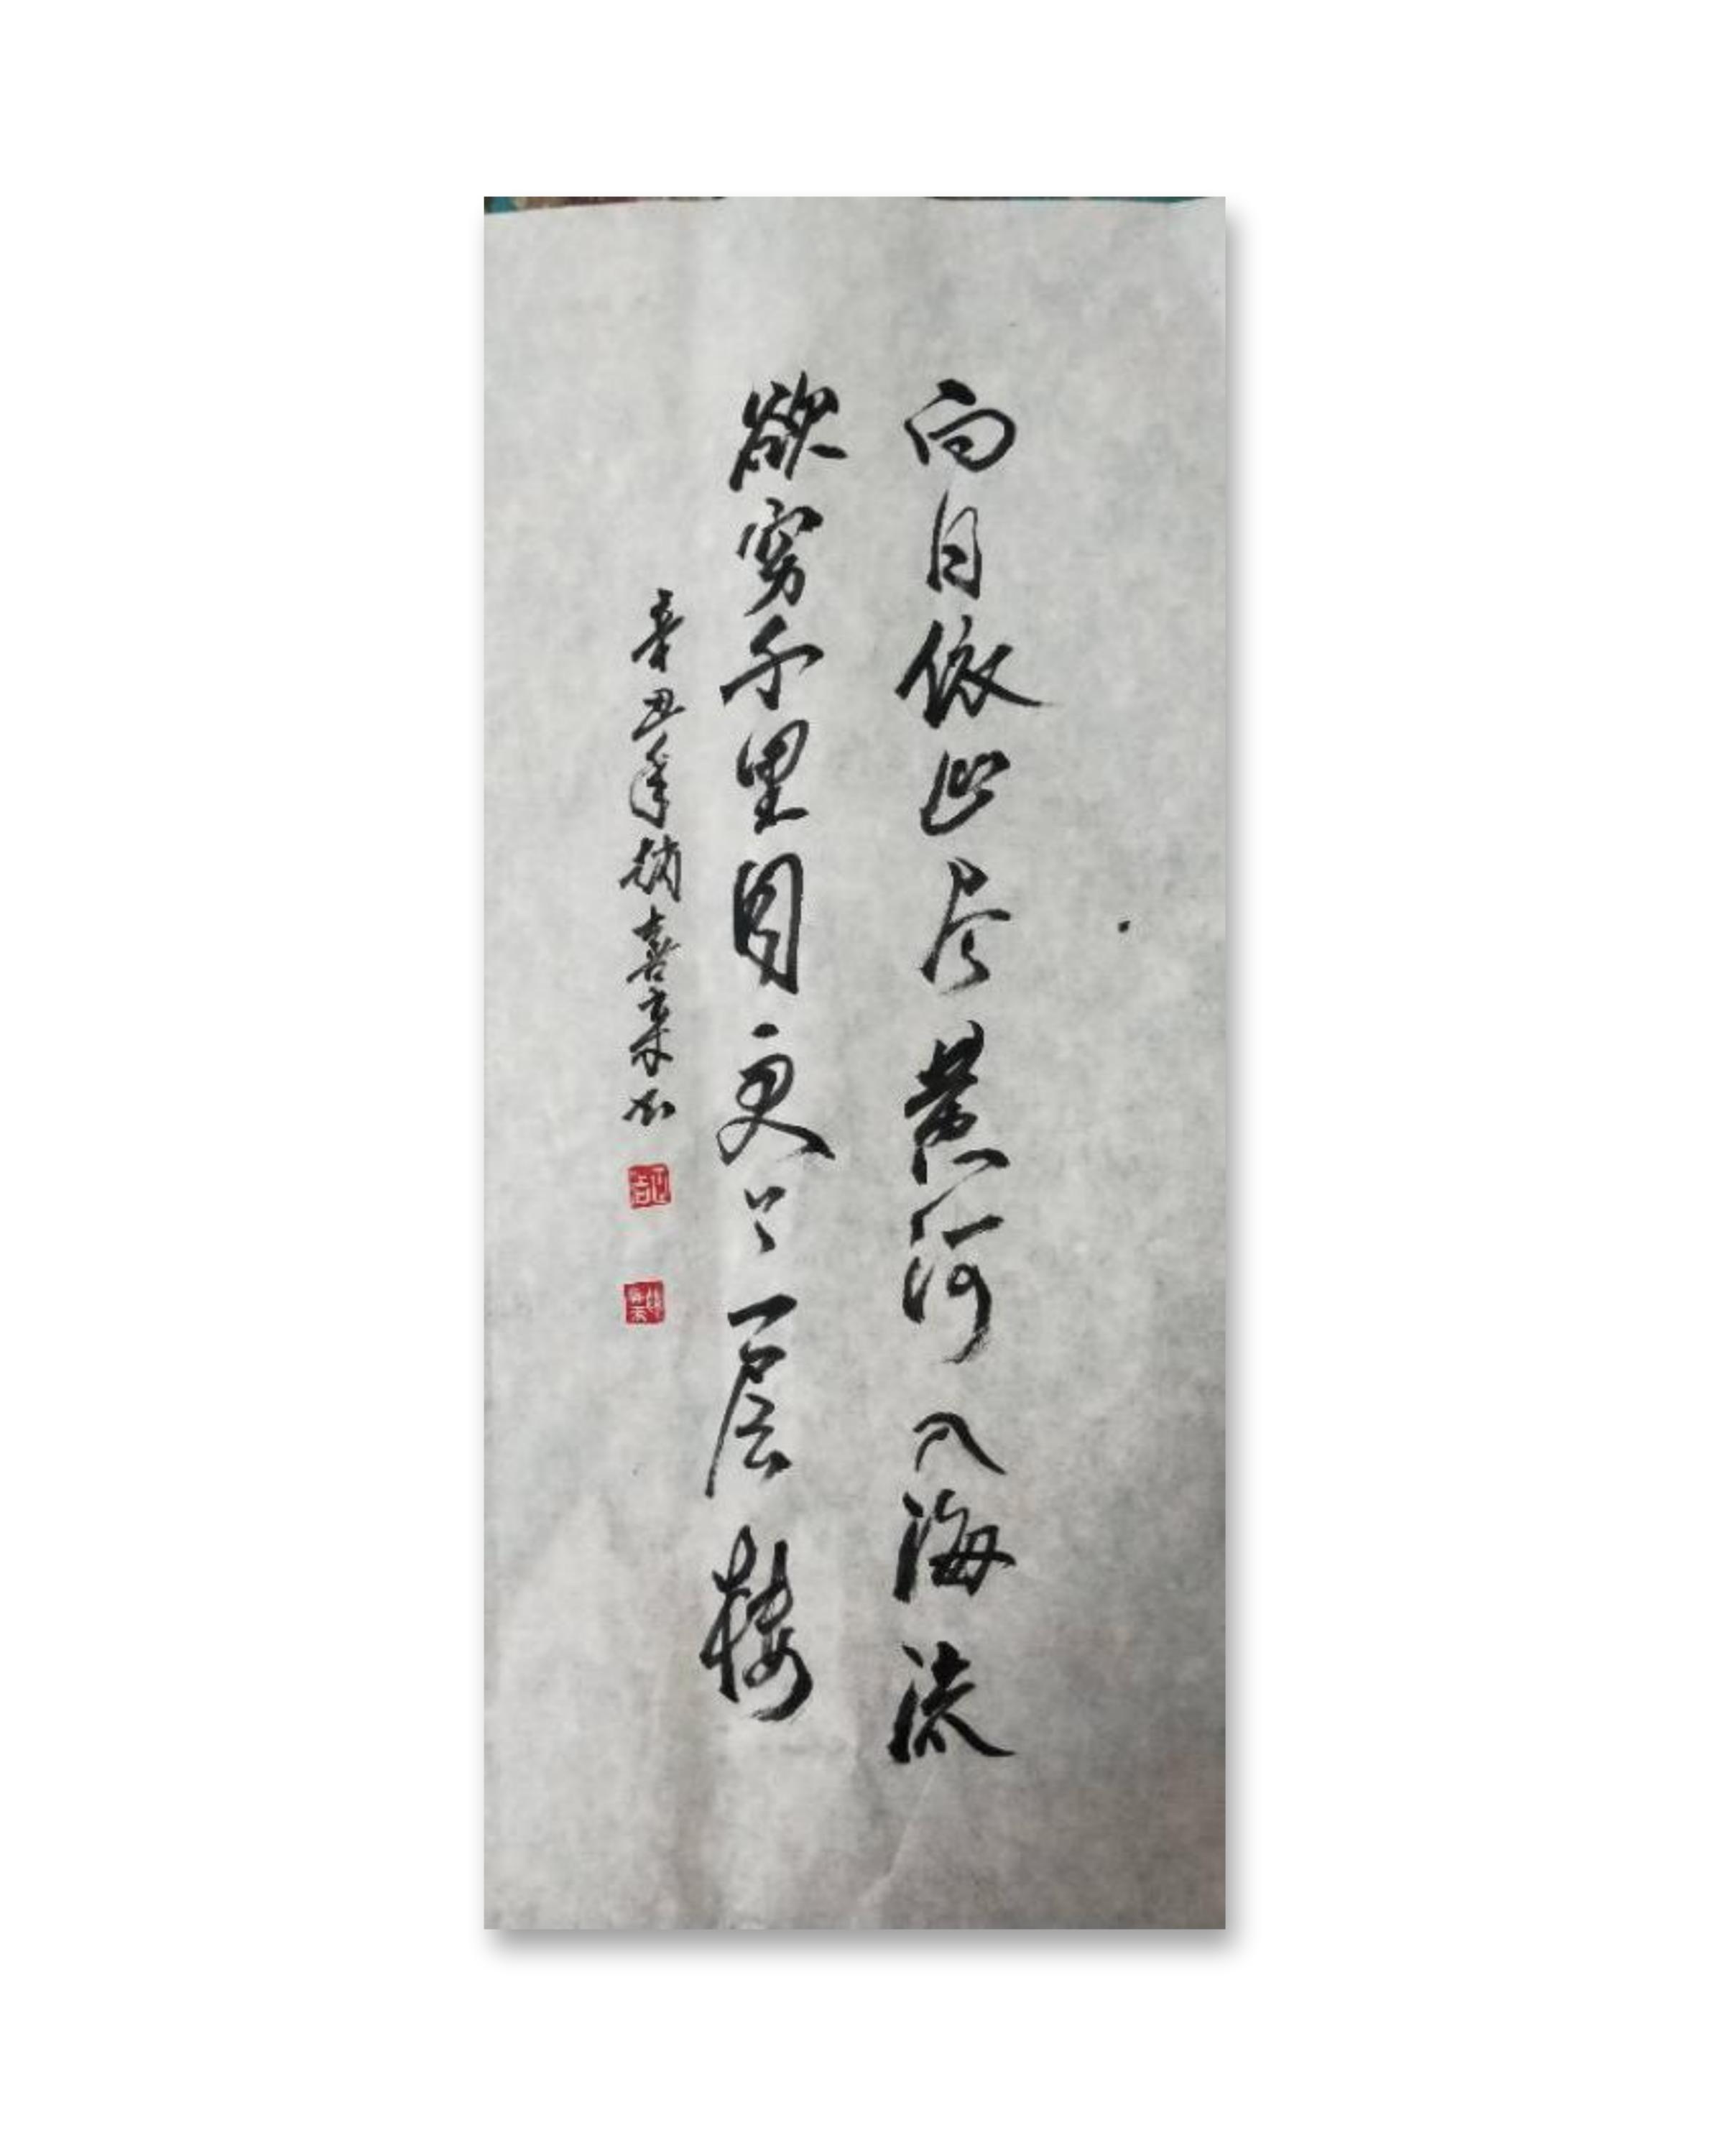 白日依山尽黄河入海流
欲穷千里目更上一层楼
辛丑年赵喜来书